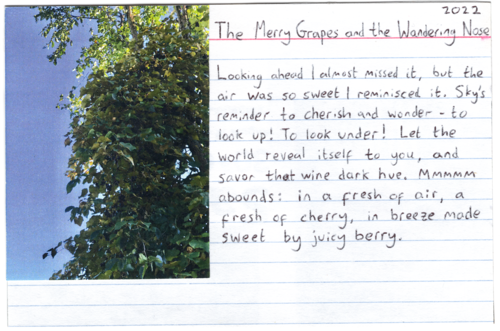 2022
The Merry Grapes and the Wandering Nose
Looking ahead I almost missed it, but the
air was so sweet I reminisced it. Sky's
reminder to cherish and wonder - to
look up! To look under! Let the
world reveal itself to you, and
savor that wine dark hue. Mmmmm
abounds: in a fresh of air, a
fresh of cherry, in breeze made
sweet by juicy berry.